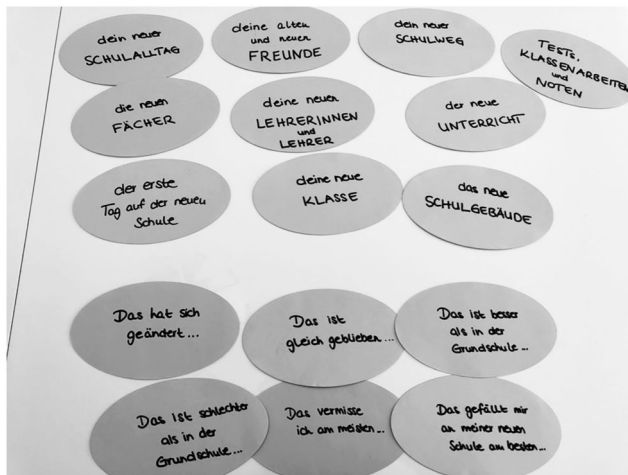 dein neuer
SCHULALLTAG
deine alten
und neuen
FREUNDE
dein neuer
SCHULWEG
TESTS,
KLASSENARBEITEN
und
NOTEN
die neuen
FÄCHER
deine neuen
LEHRERINNEN
und
LEHRER
der neue
UNTERRICHT
der erste
Tag auf der neuen
Schule
deine neue
KLASSE
das neue
SCHULGEBÄUDE
Das hat sich
geändert...
Das ist
gleich geblieben...
Das ist besser
als in der
Grundschule...
Das ist schlechter
als in der
Grundschule...
Das vermisse
ich am meisten...
Das gefällt mir
an meiner neuen
Schule am besten...